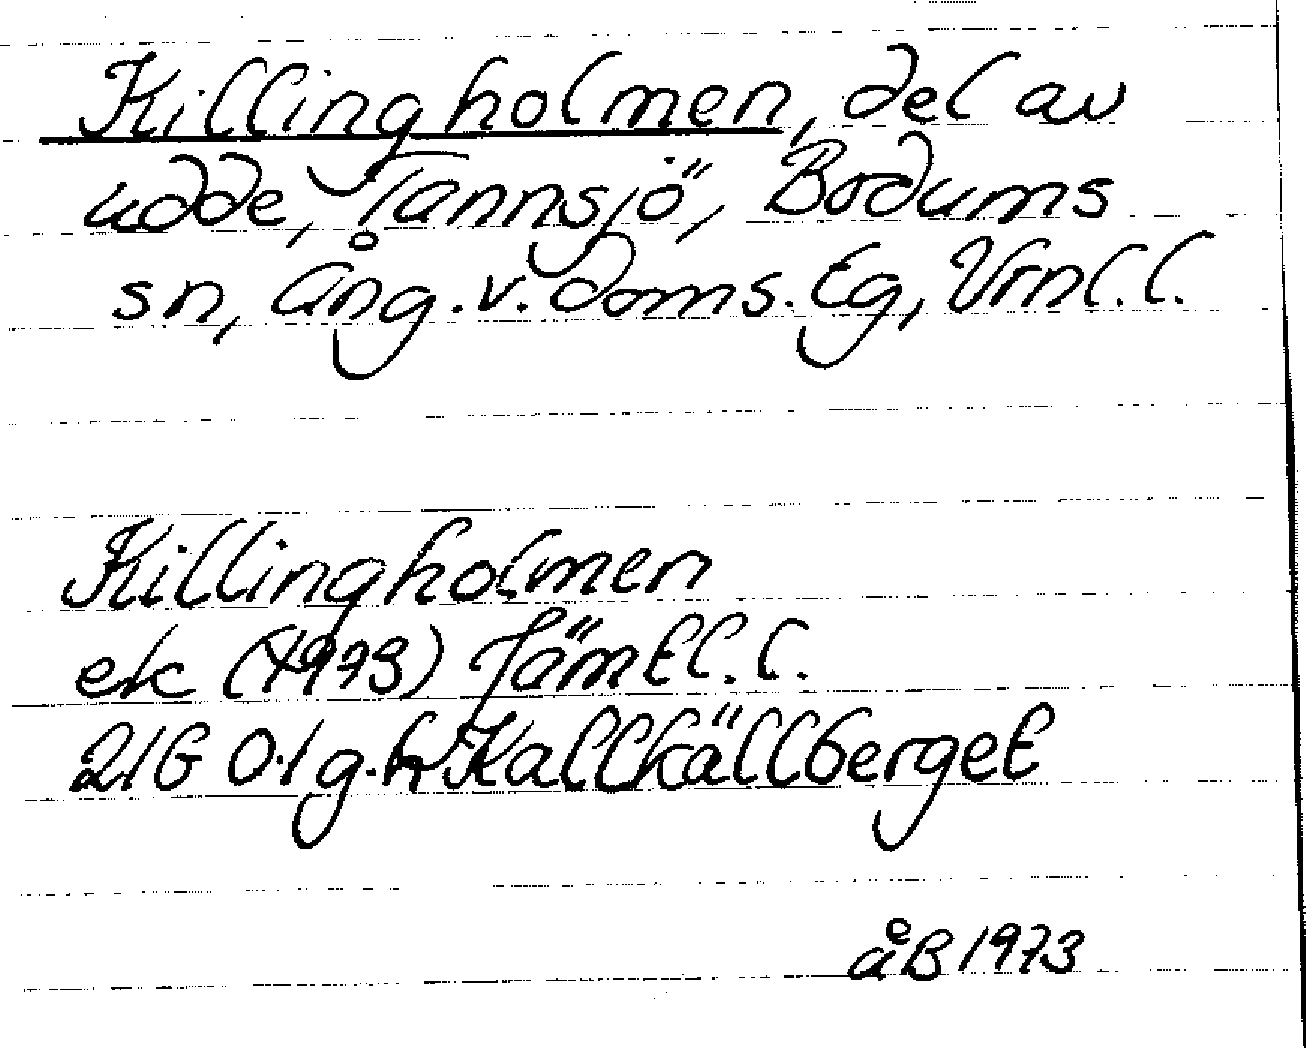 Killingholmen, del av
udde, Tannsjö, Bodums
sn, Ång. v. doms. Eg, Vrnl. l.
Killingholmen
ek (1973) Jämtl. l.
21G 0-1 g-h Kallkällberget
åB 1973